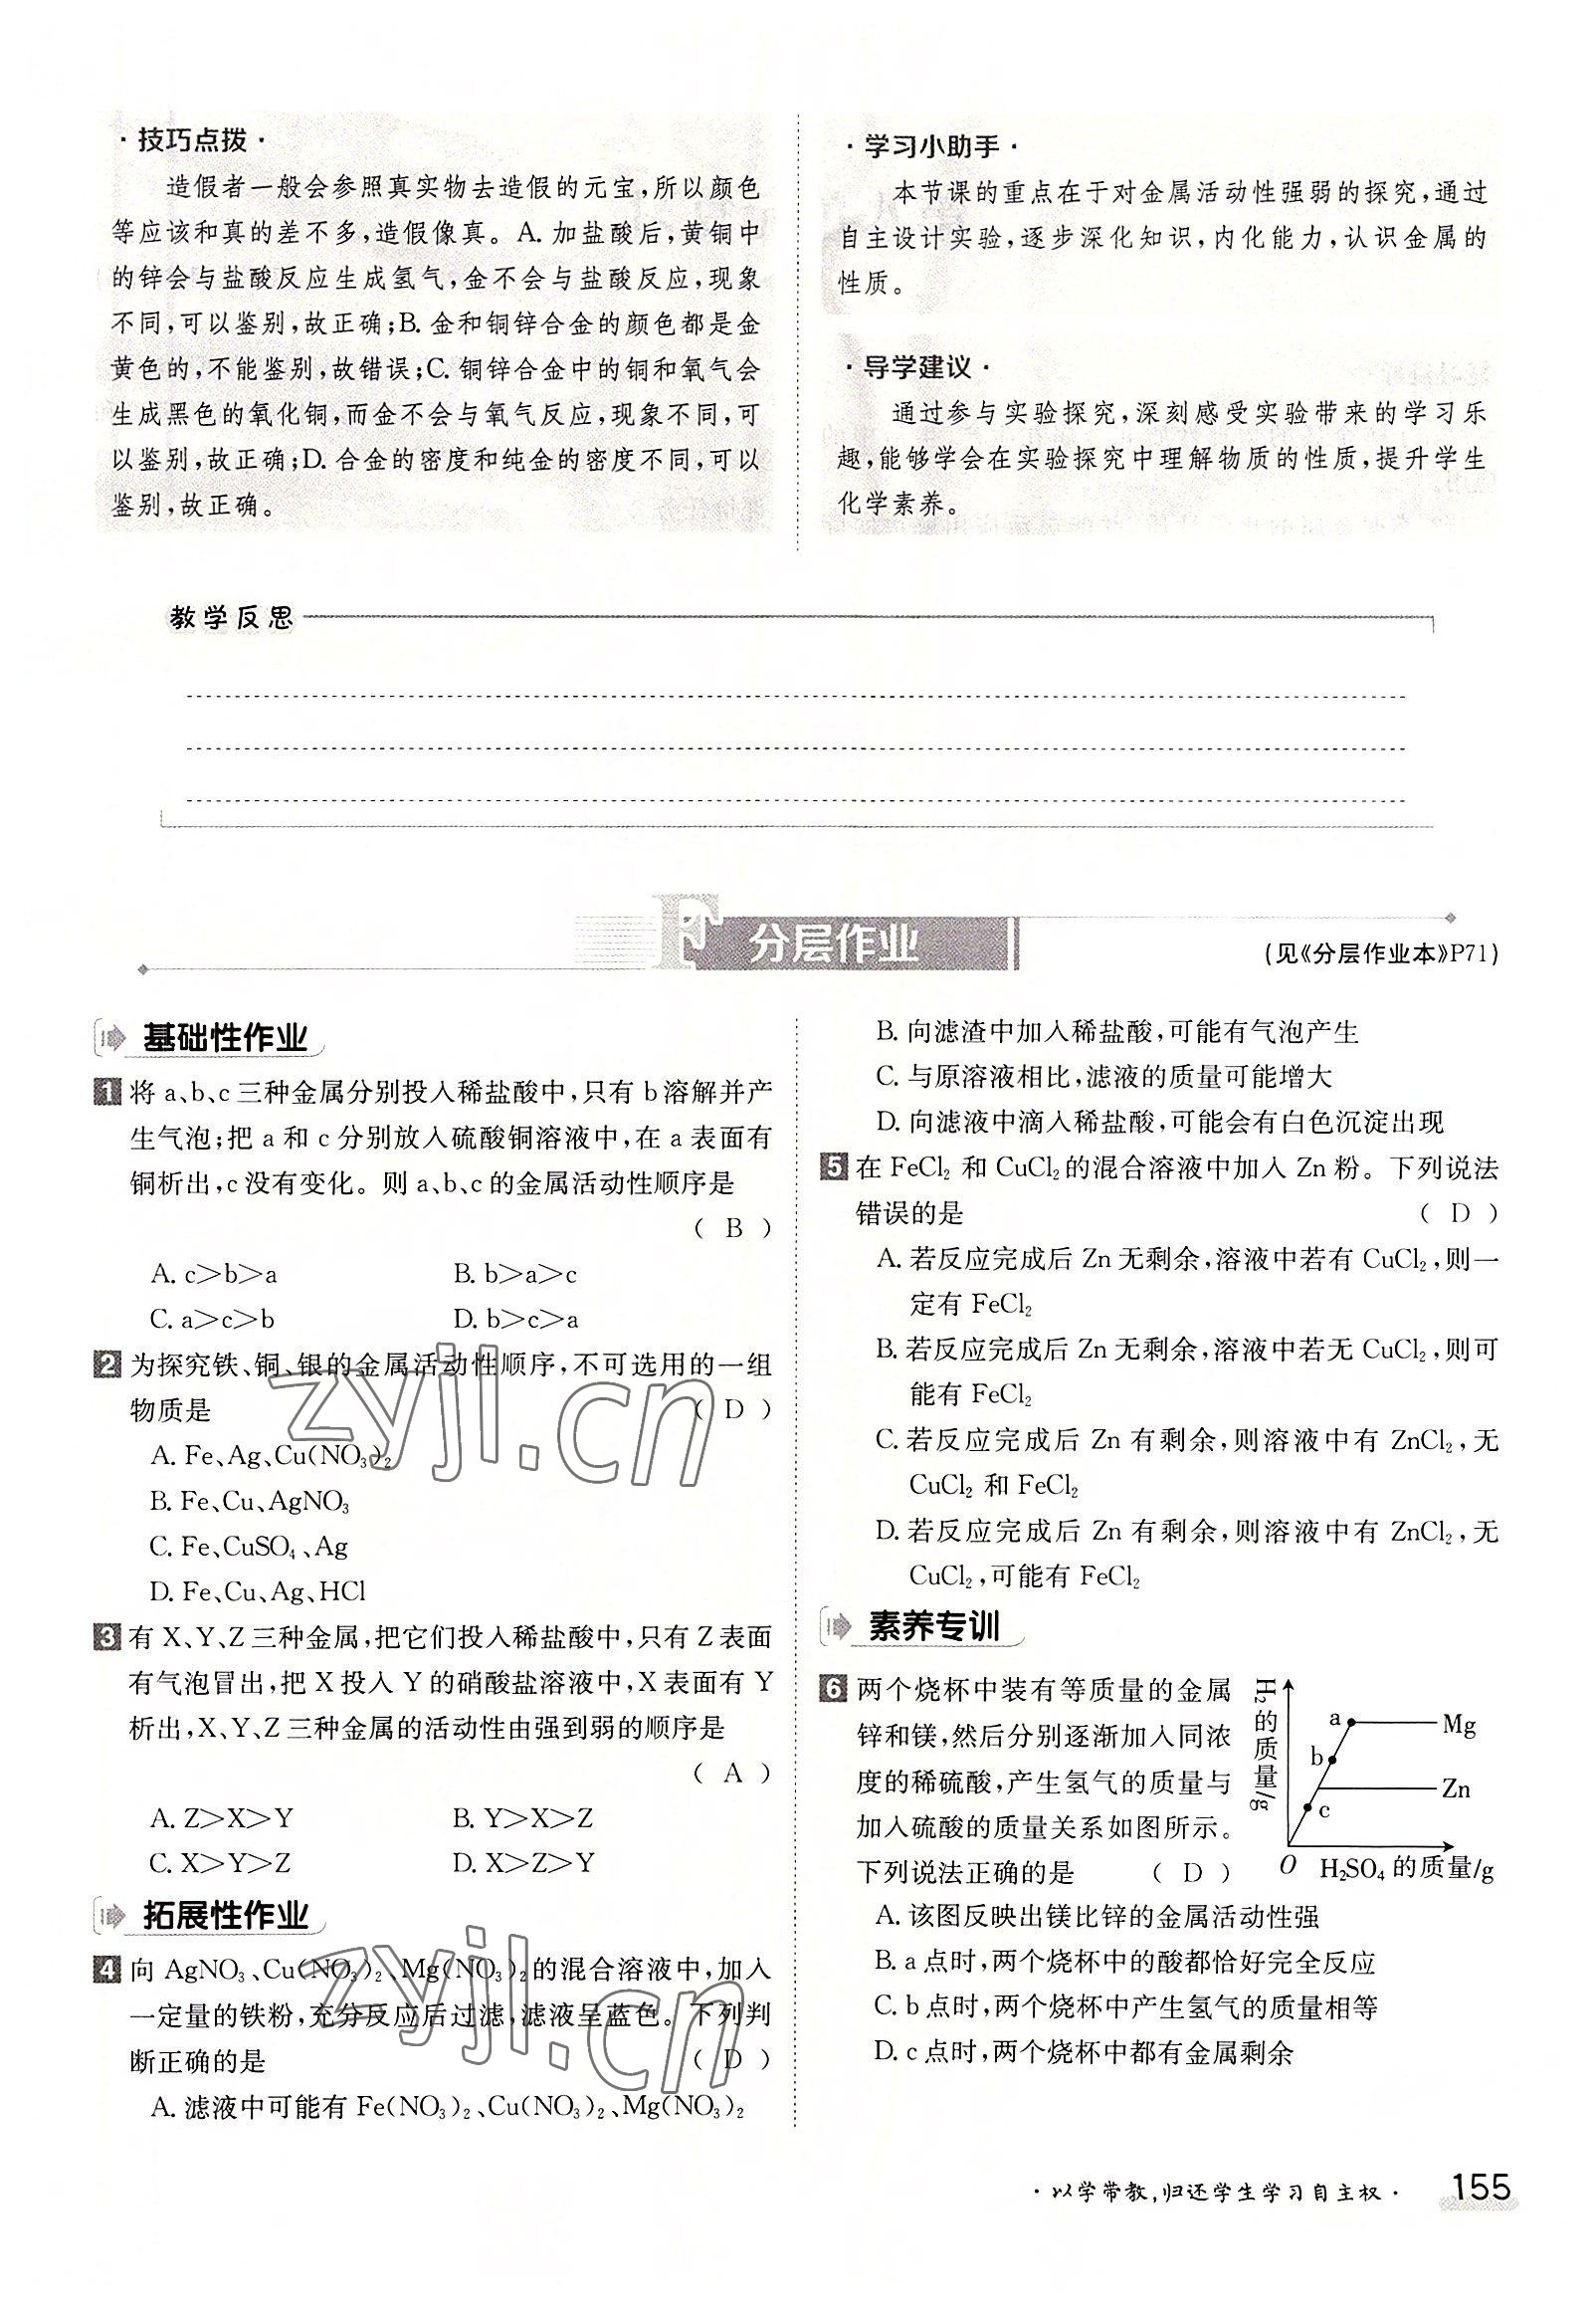 ·技巧点拨·
造假者一般会参照真实物去造假的元宝,所以颜色
等应该和真的差不多,造假像真。A. 加盐酸后,黄铜中
的锌会与盐酸反应生成氢气,金不会与盐酸反应,现象
不同,可以鉴别,故正确;B. 金和铜锌合金的颜色都是金
黄色的,不能鉴别,故错误;C. 铜锌合金中的铜和氧气会
生成黑色的氧化铜,而金不会与氧气反应,现象不同,可
以鉴别,故正确;D. 合金的密度和纯金的密度不同,可以
鉴别,故正确。
·学习小助手·
本节课的重点在于对金属活动性强弱的探究,通过
自主设计实验,逐步深化知识,内化能力,认识金属的
性质。
·导学建议·
通过参与实验探究,深刻感受实验带来的学习乐
趣,能够学会在实验探究中理解物质的性质,提升学生
化学素养。
教学反思
F 分层作业
(见《分层作业本》P71)
基础性作业
1 将 a、b、c 三种金属分别投入稀盐酸中,只有 b 溶解并产
生气泡;把 a 和 c 分别放入硫酸铜溶液中,在 a 表面有
铜析出,c 没有变化。则 a、b、c 的金属活动性顺序是
( B )
A. c>b>a B. b>a>c
C. a>c>b D. b>c>a
2 为探究铁、铜、银的金属活动性顺序,不可选用的一组
物质是 ( D )
A. Fe、Ag、Cu(NO₃)₂
B. Fe、Cu、AgNO₃
C. Fe、CuSO₄、Ag
D. Fe、Cu、Ag、HCl
3 有 X、Y、Z 三种金属,把它们投入稀盐酸中,只有 Z 表面
有气泡冒出,把 X 投入 Y 的硝酸盐溶液中,X 表面有 Y
析出,X、Y、Z 三种金属的活动性由强到弱的顺序是
( A )
A. Z>X>Y B. Y>X>Z
C. X>Y>Z D. X>Z>Y
拓展性作业
4 向 AgNO₃、Cu(NO₃)₂、Mg(NO₃)₂的混合溶液中,加入
一定量的铁粉,充分反应后过滤,滤液呈蓝色。下列判
断正确的是 ( D )
A. 滤液中可能有 Fe(NO₃)₂、Cu(NO₃)₂、Mg(NO₃)₂
B. 向滤渣中加入稀盐酸,可能有气泡产生
C. 与原溶液相比,滤液的质量可能增大
D. 向滤液中滴入稀盐酸,可能会有白色沉淀出现
5 在 FeCl₂ 和 CuCl₂的混合溶液中加入 Zn 粉。下列说法
错误的是 ( D )
A. 若反应完成后 Zn 无剩余,溶液中若有 CuCl₂,则一
定有 FeCl₂
B. 若反应完成后 Zn 无剩余,溶液中若无 CuCl₂,则可
能有 FeCl₂
C. 若反应完成后 Zn 有剩余,则溶液中有 ZnCl₂,无
CuCl₂ 和 FeCl₂
D. 若反应完成后 Zn 有剩余,则溶液中有 ZnCl₂,无
CuCl₂,可能有 FeCl₂
素养专训
6 两个烧杯中装有等质量的金属
锌和镁,然后分别逐渐加入同浓
度的稀硫酸,产生氢气的质量与
加入硫酸的质量关系如图所示。
下列说法正确的是 ( D )
H₂的质量/g
a
Mg
b
Zn
c
O
H₂SO₄的质量/g
A. 该图反映出镁比锌的金属活动性强
B. a 点时,两个烧杯中的酸都恰好完全反应
C. b 点时,两个烧杯中产生氢气的质量相等
D. c 点时,两个烧杯中都有金属剩余
·以学带教,归还学生学习自主权·
155
zyjl.cn
zyjl.cn